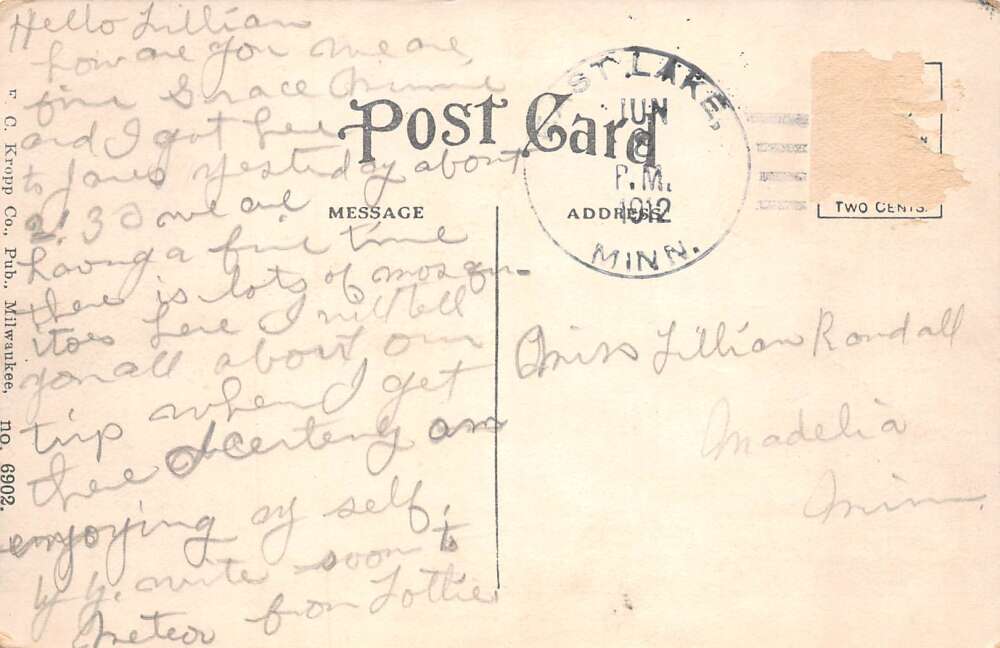 Hello Lillian
how are you we are
fine Grace Minnie
and I got here
to Janes yesterday about
2:30 we are
having a fine time
there is lots of mosqu-
itoes here I will tell
you all about our
trip when I get
there I certeny am
enjoying my self.
by by. write soon to
from Lottie
F. C. Kropp Co., Pub., Milwaukee, no. 6902.
Post Card
MESSAGE
ADDRESS
ST. LAKE,
JUN
8
P.M.
1912
MINN.
TWO CENTS.
Miss Lillian Randall
Madelia
Minn.